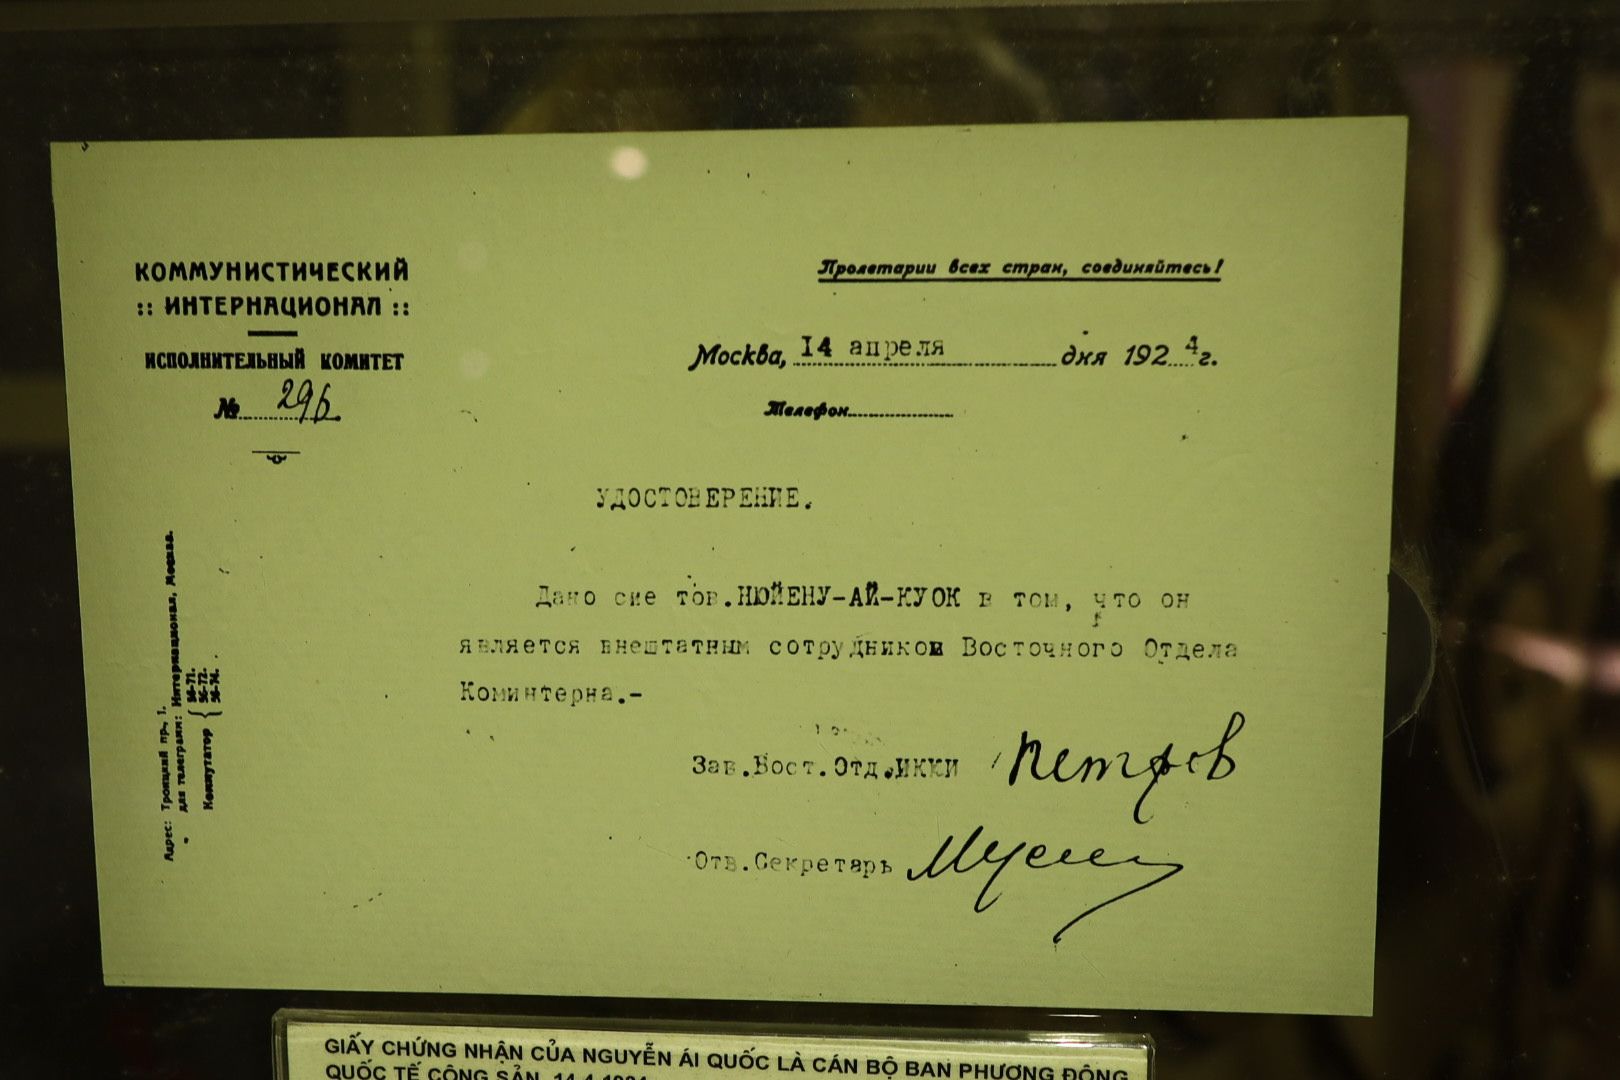 КОММУНИСТИЧЕСКИЙ
:: ИНТЕРНАЦИОНАЛ ::
ИСПОЛНИТЕЛЬНЫЙ КОМИТЕТ
№ 296
Пролетарии всех стран, соединяйтесь!
Москва, 14 апреля дня 1924г.
Телефон
УДОСТОВЕРЕНИЕ.
Дано сие тов.НЮЙЕНУ-АЙ-КУОК в том, что он
является внештатным сотрудником Восточного Отдела
Коминтерна.-
Зав.Вост.Отд.ИККИ Петров
Отв.Секретарь
Адрес: Троицкий пр., 1.
" для телеграмм: Интернационал, Москва.
Коммутатор { 56-71.
56-72.
56-74.
GIẤY CHỨNG NHẬN CỦA NGUYỄN ÁI QUỐC LÀ CÁN BỘ BAN PHƯƠNG ĐÔNG
QUỐC TẾ CỘNG SẢN, 14-4-1924